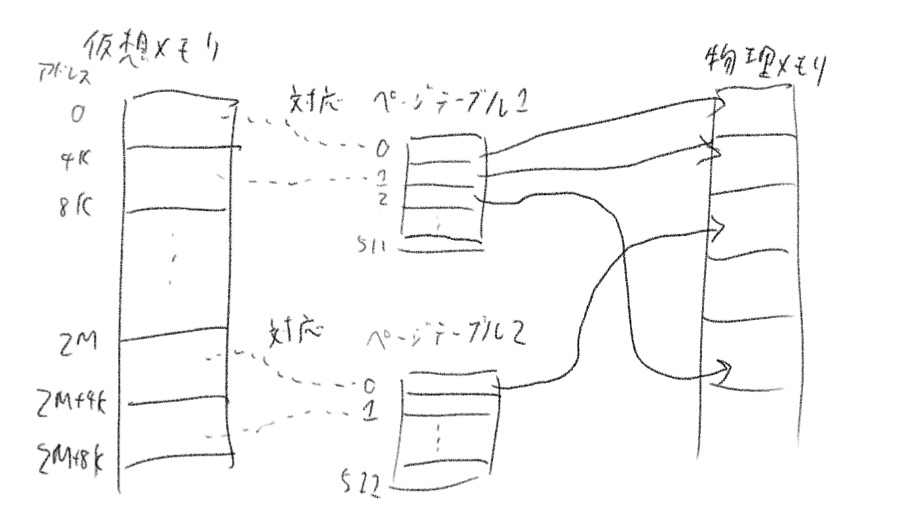 仮想メモリ
アドレス
0
4K
8K
2M
2M+4K
2M+8K
対応
ページテーブル1
0
1
2
511
対応
ページテーブル2
0
1
512
物理メモリ